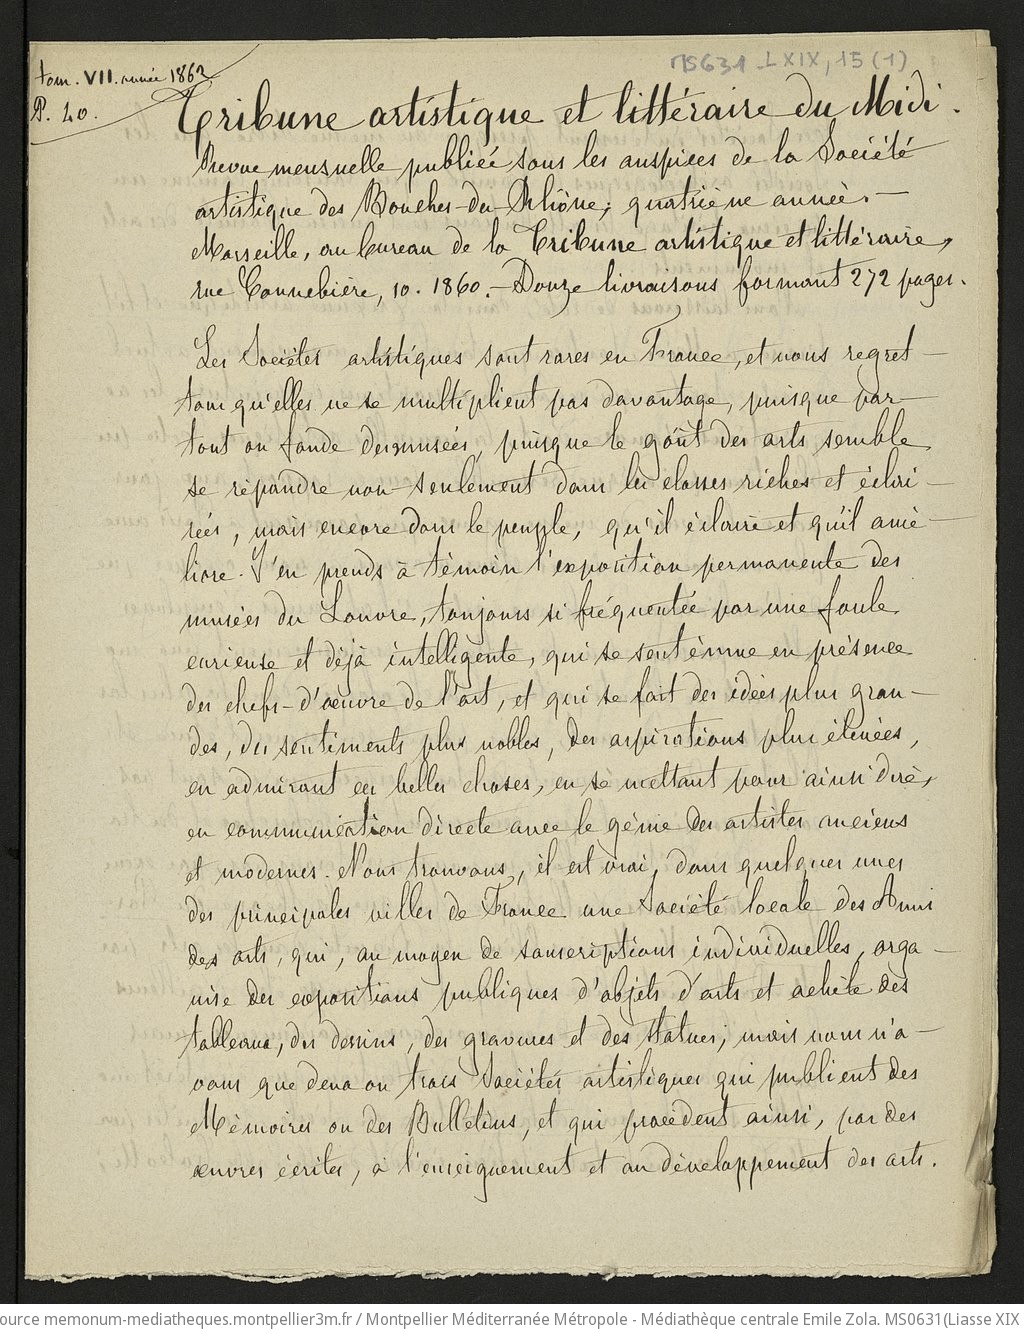 tom. VII. année 1862
P. 40.
MS631 LXIX, 15 (1)
Tribune artistique et littéraire du Midi.
Revue mensuelle publiée sous les auspices de la Société
artistique des Bouches-du-Rhône; quatrième année. —
Marseille, au bureau de la Tribune artistique et littéraire,
rue Cannebière, 10. 1860. — Douze livraisons formant 272 pages.
Les Sociétés artistiques sont rares en France, et nous regret-
tons qu'elles ne se multiplient pas davantage, puisque par-
tout on fonde des musées, puisque le goût des arts semble
se répandre non-seulement dans les classes riches et éclai-
rées, mais encore dans le peuple, qu'il éclaire et qu'il amé-
liore. J'en prends à témoin l'exposition permanente des
musées du Louvre, toujours si fréquentée par une foule
curieuse et déjà intelligente, qui se sent émue en présence
des chefs-d'œuvre de l'art, et qui se fait des idées plus gran-
des, des sentiments plus nobles, des aspirations plus élevées,
en admirant ces belles choses, en se mettant pour ainsi dire,
en communication directe avec le génie des artistes anciens
et modernes. Nous trouvons, il est vrai, dans quelques unes
des principales villes de France une Société locale des Amis
des arts, qui, au moyen de souscriptions individuelles, orga-
nise des expositions publiques d'objets d'arts et achète des
tableaux, des dessins, des gravures et des statues; mais nous n'a-
vons que deux ou trois Sociétés artistiques qui publient des
Mémoires ou des Bulletins, et qui procèdent ainsi, par des
œuvres écrites, à l'enseignement et au développement des arts.
ource memonum-mediatheques.montpellier3m.fr / Montpellier Méditerranée Métropole - Médiathèque centrale Emile Zola. MS0631(Liasse XIX